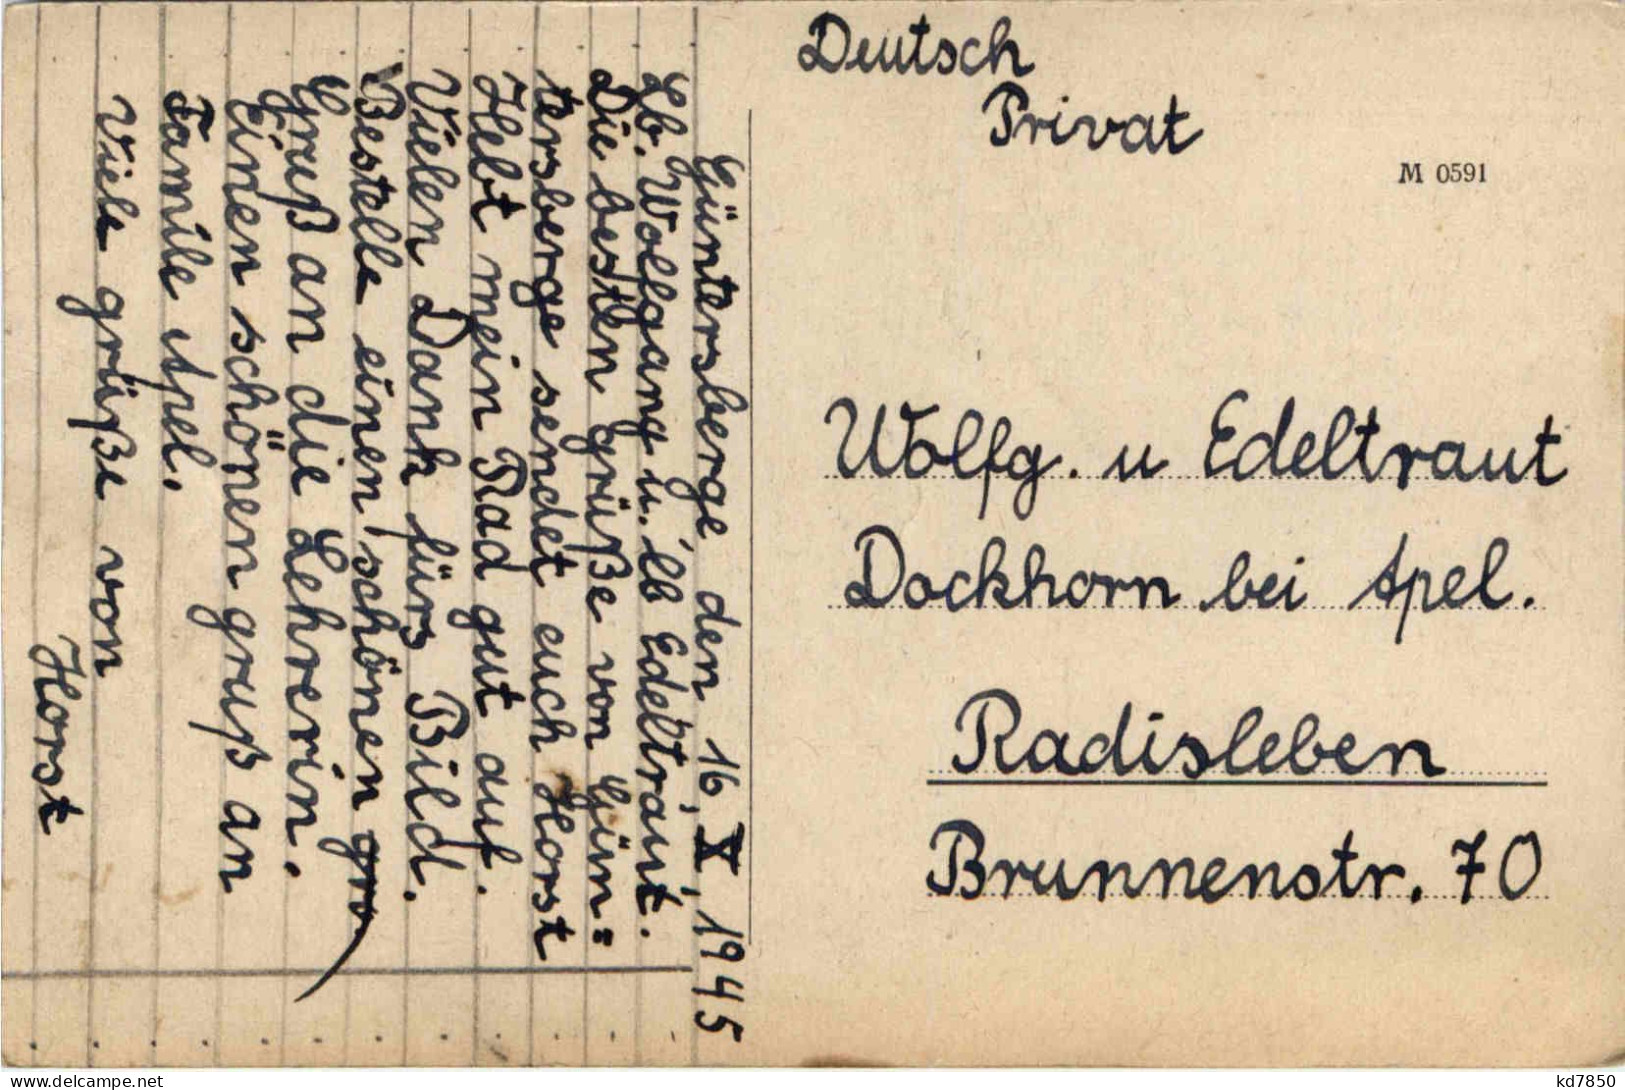 Güntersberge den 16, X, 1945
Lb. Wolfgang u. lb Edeltraut.
Die besten grüße von Gün=
tersberge sendet euch Horst
Hebt mein Rad gut auf.
Vielen Dank fürs Bild.
Bestelle einen schönen gru
Gruß an die Lehrerin.
Einen schönen gruß an
Famile Apel.
Viele grüße von
Horst
Deutsch
Privat
M 0591
Wolfg. u Edeltraut
Dockhorn bei Apel.
Radisleben
Brunnenstr. 70
kd7850